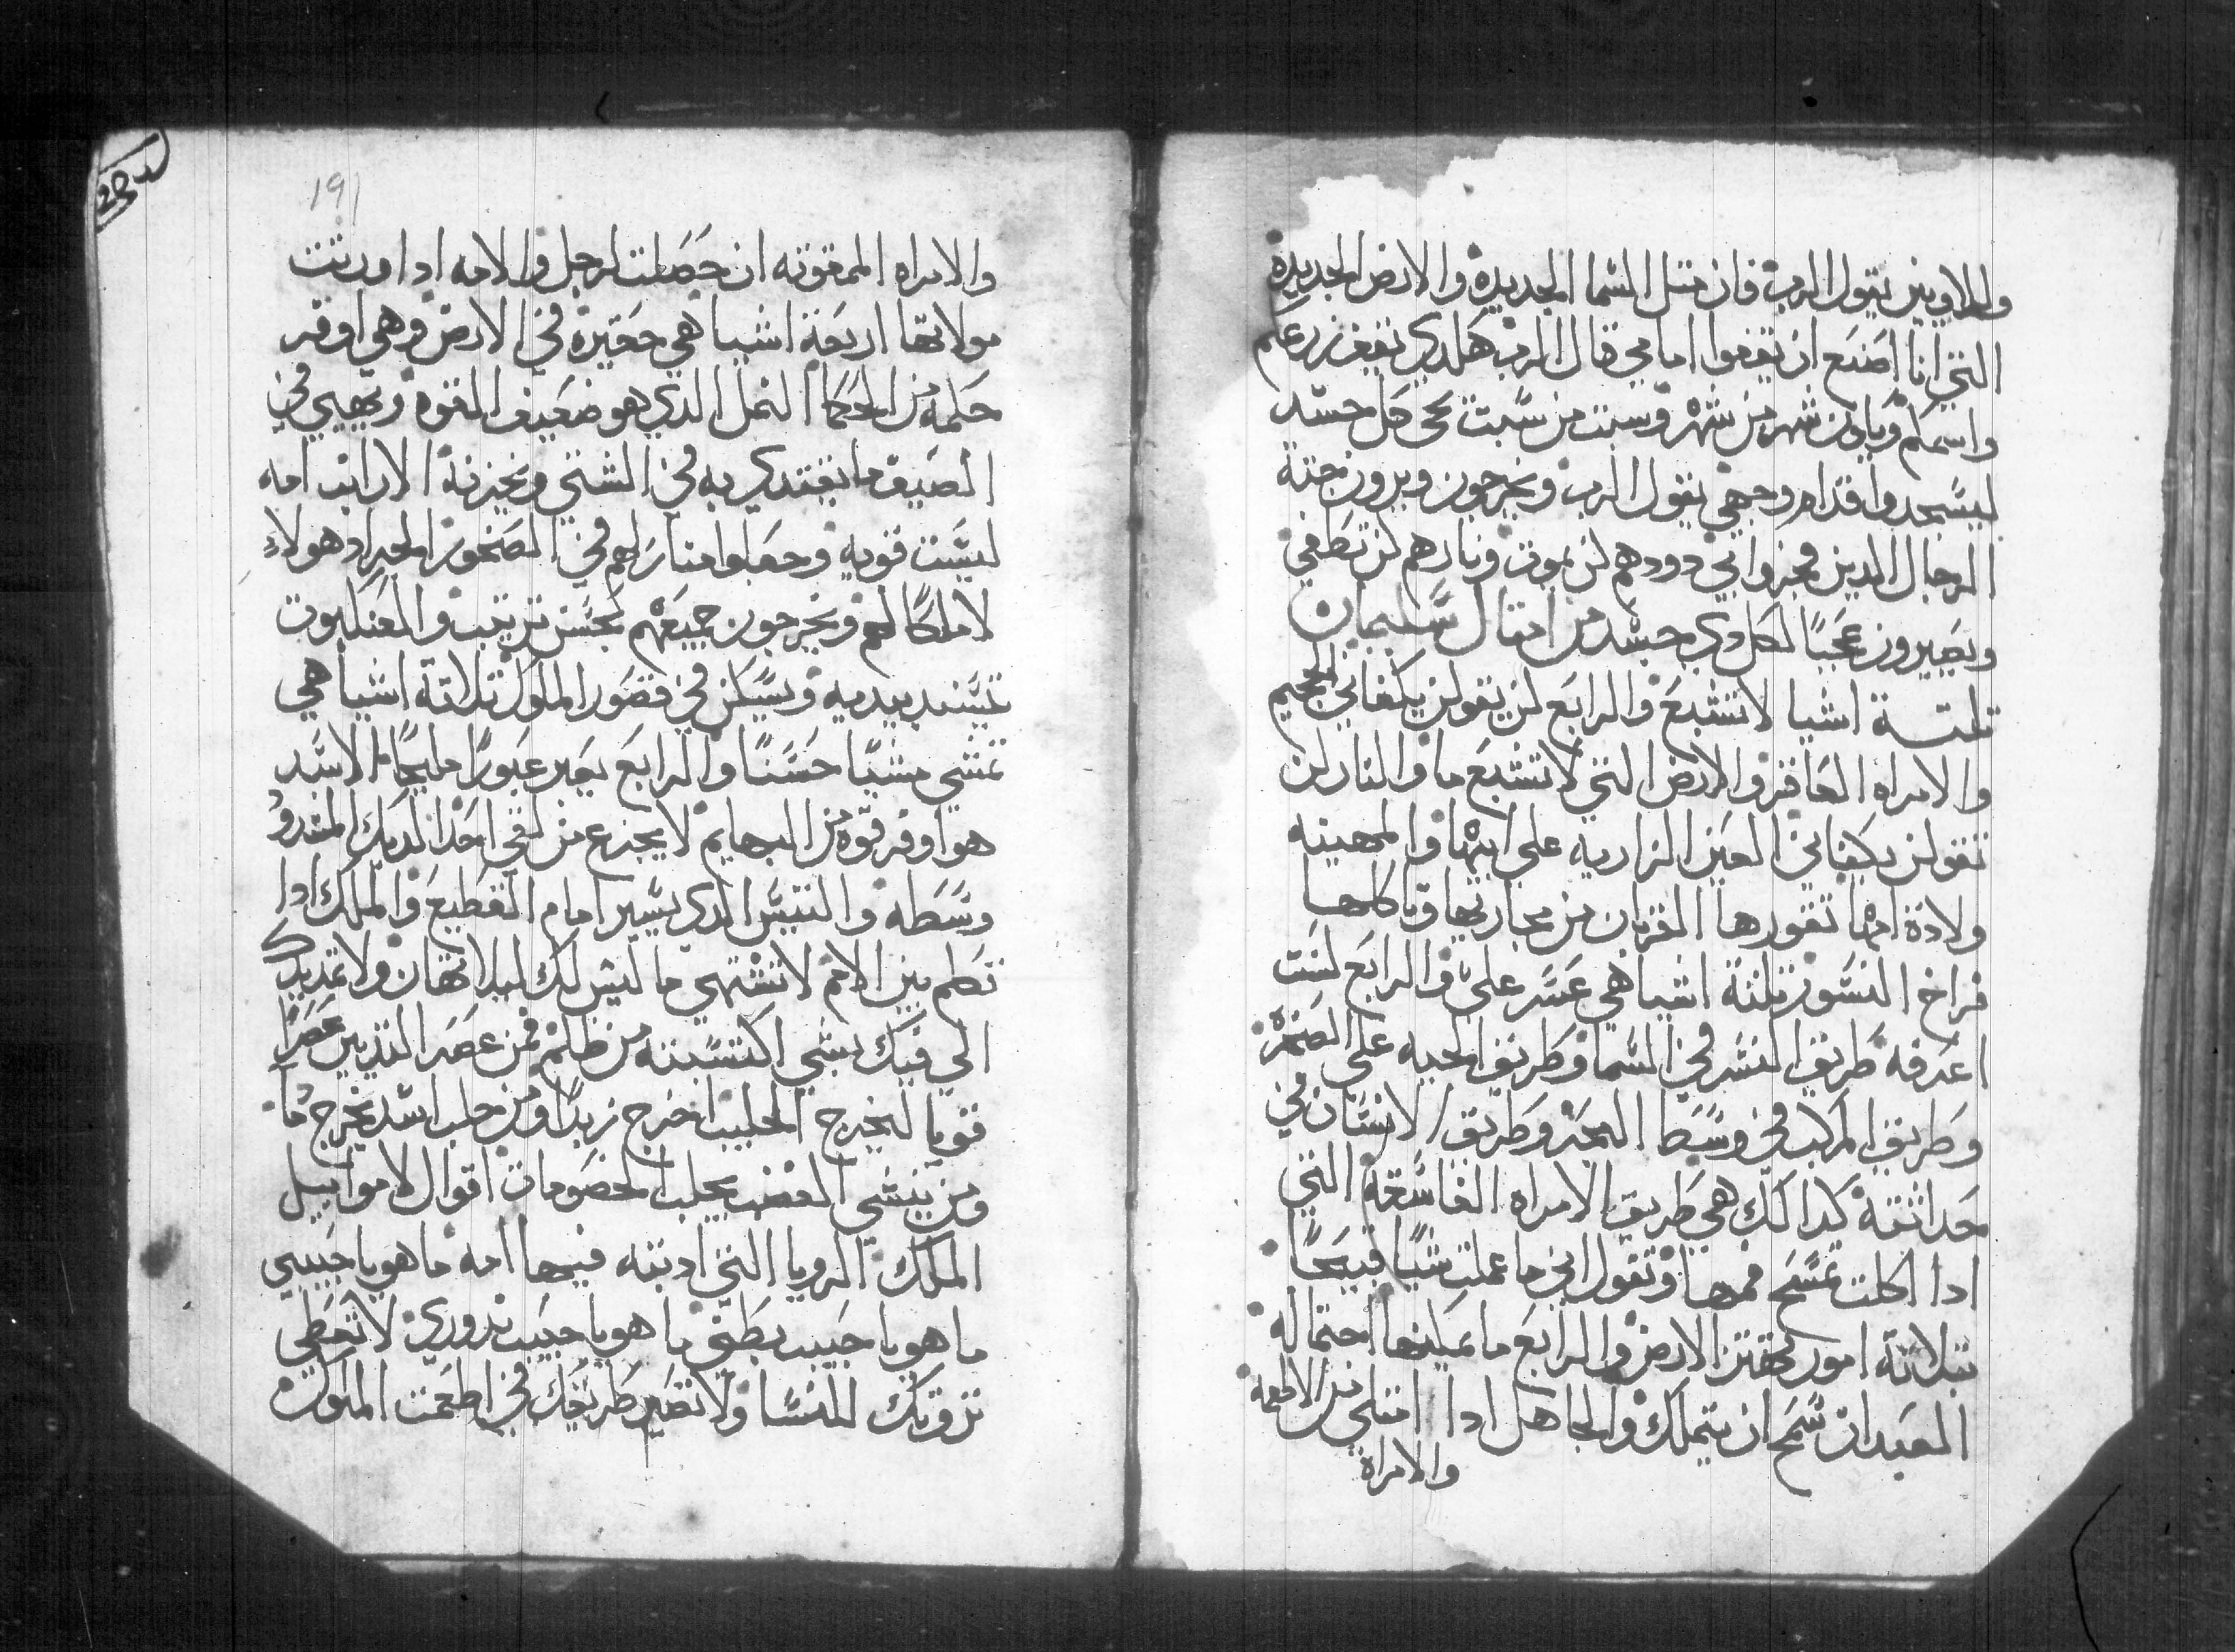 واللاويين يقول الرب فان متل السما الجديدة والارض الجديدة
التي انا اصنع ان يقفوا امامي قال الرب هكدي يقف زرعكم
واسمكم ويكون شهر من شهر وسبت من سبت يجي كل جسد
ليسجدوا قدام وجهي يقول الرب ويخرجون ويرون جتة
الرجال الدين فجروا بي دودهم لن يموت ونارهم لن تطفي
ويصيرون عجبًا لكل دي جسد من امتال سليمان
تلتة اشيا لا تشبع والرابع لن يقولن يكفاني الجحيم
والامراه العاقر والارض التي لا تشبع ما والنار لن
تقولن يكفاني العين الزاريه علي ابيها والمهينه
ولادة امها تقورها الغربان من مجاريها وتاكلها
فراخ النسور تلتة اشيا هي عسر علي والرابع لست
اعرفه طريق النسر في السما وطريق الحيه علي الصخرة
وطريق المركب في وسط البحر وطريق الانسان في
حداثته كدالك هي طريق الامراه الفاسقه التي
ادا اكلت تمسح فمها وتقول اني ما عملت شيًا قبيحًا
بتلاتة امور تحقتن الارض والرابع ما يمكنها احتماله
العبد ان سمح ان يتملك والجاهل ادا امتلي من الاطعمه
والامراة
191
والامراه الممقوته ان حصلت لرجل والامه ادا ورتت
مولاتها اربعة اشيا هي حقيرة في الارض وهي اوفر
حكمه من الحكما النمل الدي هو ضعيف القوة ويهيي في
الصيف ما يغتدي به في الشتي ويخزنه الارانب امه
ليست قويه وجعلوا منازلهم في الصخور الجراد هولاء
لا ملكًا لهم ويخرجون جميعهم بحسن ترتيب والعنكبوت
تستند بيديه ويسكن في قصور الملوك تلاتة اشيا هي
تمشي مشيًا حسنًا والرابع يعبر عبورًا مليحًا الاسد
هو اوفر قوة من البهايم لا يجزع من لقي احد الديك المشدود
وسطه والتيس الدي يسير امام القطيع والملك ادا
تكلم بين الامم لا تشتهي ما ليس لك ليلا تهان ولا تمد يدك
الي فيك بشي اكتسبته من ظلم فمن عصر التديين عصرًا
قويا ليخرج الحليب اخرج زبدًا ومن حلب اشد يخرج دما
ومن ينشي الغضب يجلب الخصومات اقوال لاموابيل
الملك الرويا التي ادبته فيها امه ما هو يا حبيبي
ما هو يا حبيب بطني ما هو يا حبيب ندوري لا تعطي
تروتك للنسا ولا تصير طريقك في اطعمت الملوك